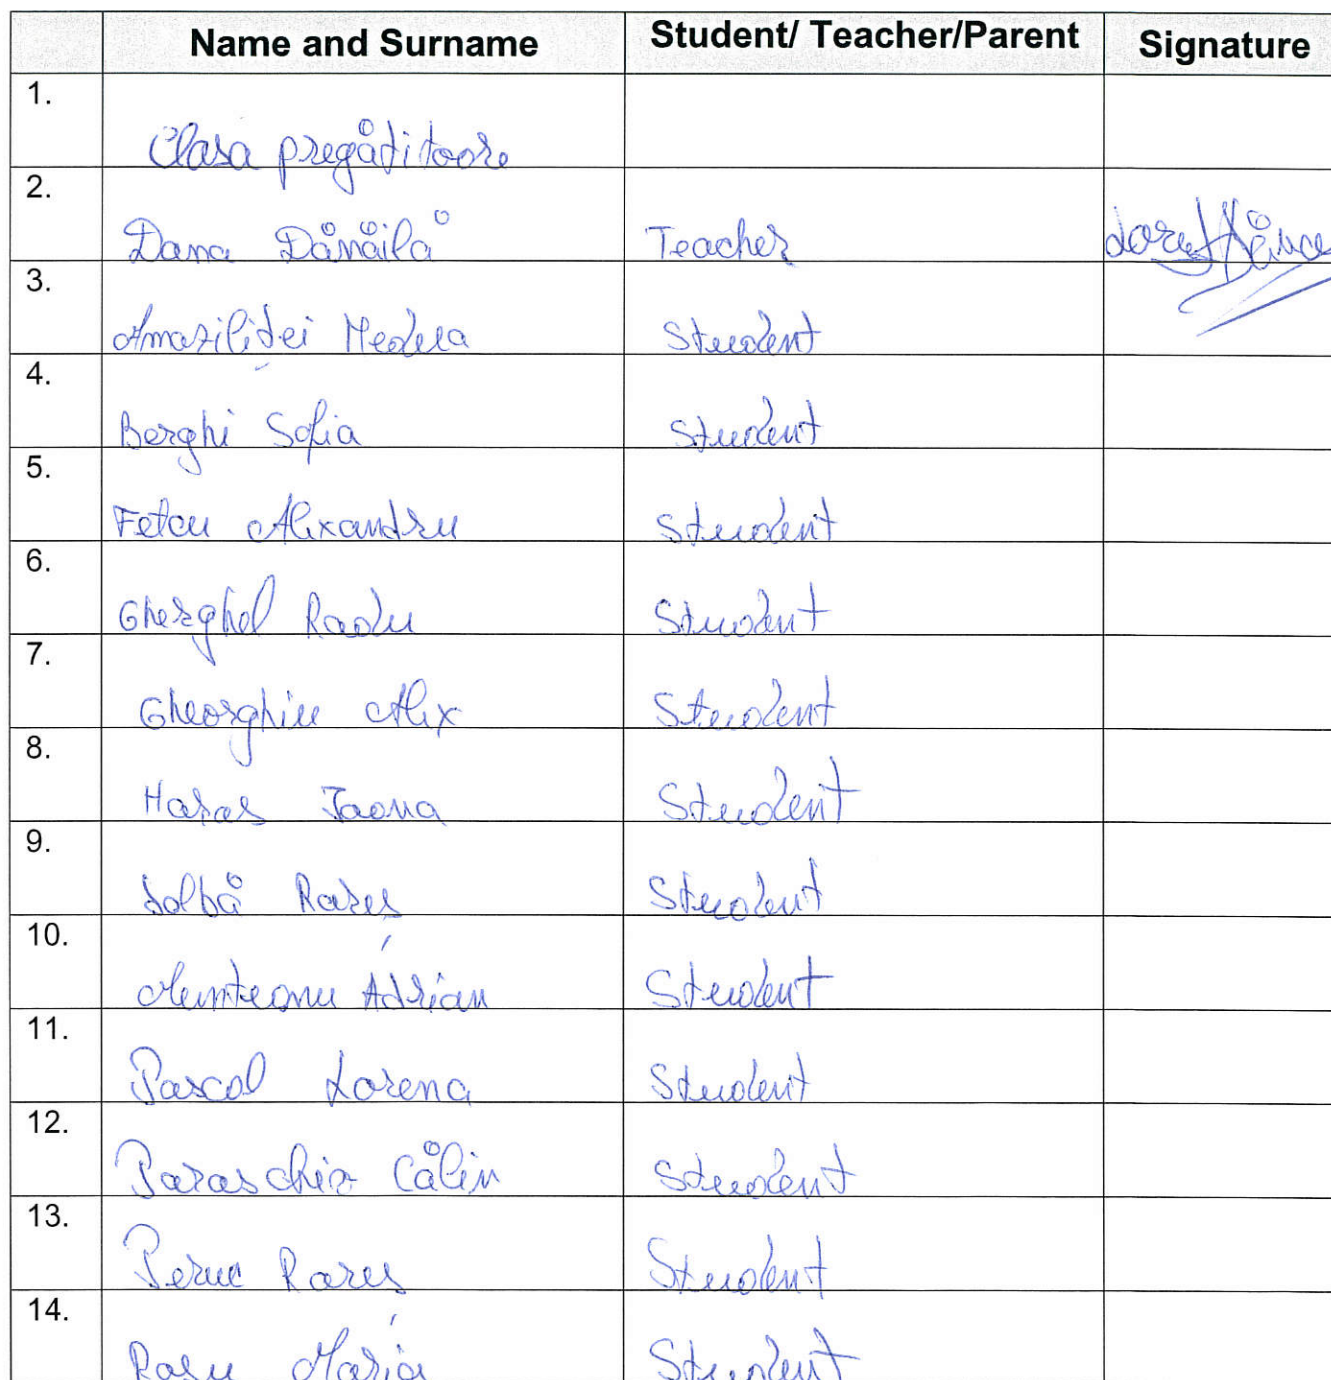 Name and Surname Student/ Teacher/Parent Signature
1. Clasa pregătitoare
2. Dana Dănăilă Teacher
3. Amazilitei Medeea Student
4. Berghi Sofia Student
5. Fetcu Alexandru Student
6. Gherghel Radu Student
7. Gheorghiu Alex Student
8. Haras Ioana Student
9. Solbă Rareș Student
10. Munteanu Adrian Student
11. Pascal Lorena Student
12. Paraschiv Călin Student
13. Rareș Student
14. Maria Student